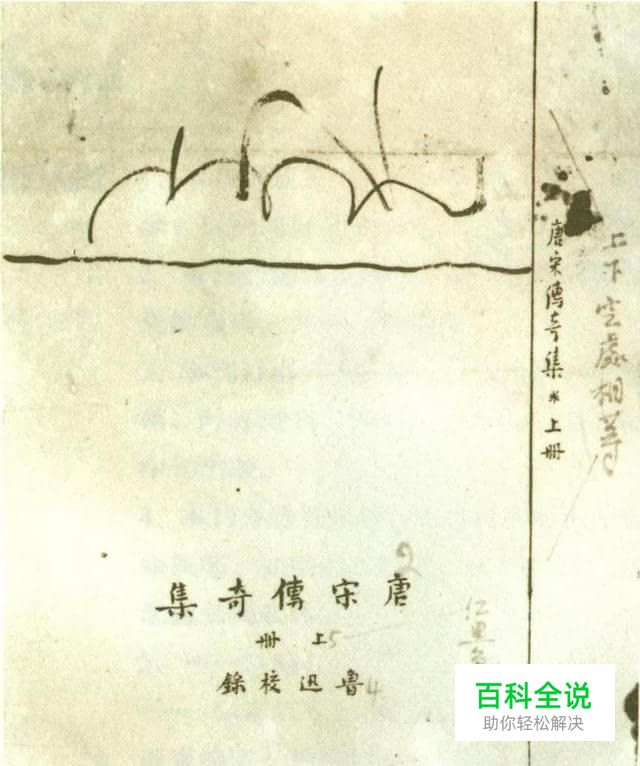 上下空處相等
唐宋傳奇集 * 上冊
2
唐宋傳奇集
上冊 5
魯迅校錄 4
百科全说
助你轻松解决